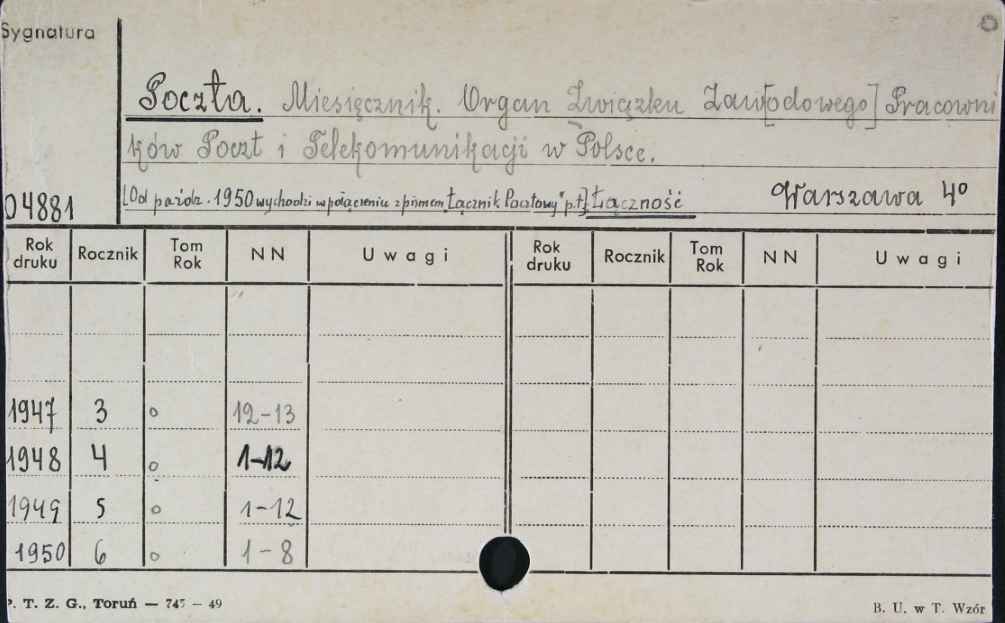 Sygnatura
Poczta. Miesięcznik. Organ Związku Zaw[odowego] Pracowni
ków Poczt i Telekomunikacji w Polsce.
[Od paźdz. 1950 wychodzi w połączeniu z pismem "Łącznik Pocztowy" p.t.] Łączność Warszawa 4°
04881
Rok druku Rocznik Tom Rok NN Uwagi Rok druku Rocznik Tom Rok NN Uwagi
1947 3 o 12-13
1948 4 o 1-12
1949 5 o 1-12
1950 6 o 1-8
P. T. Z. G., Toruń — 745 — 49 B. U. w T. Wzór